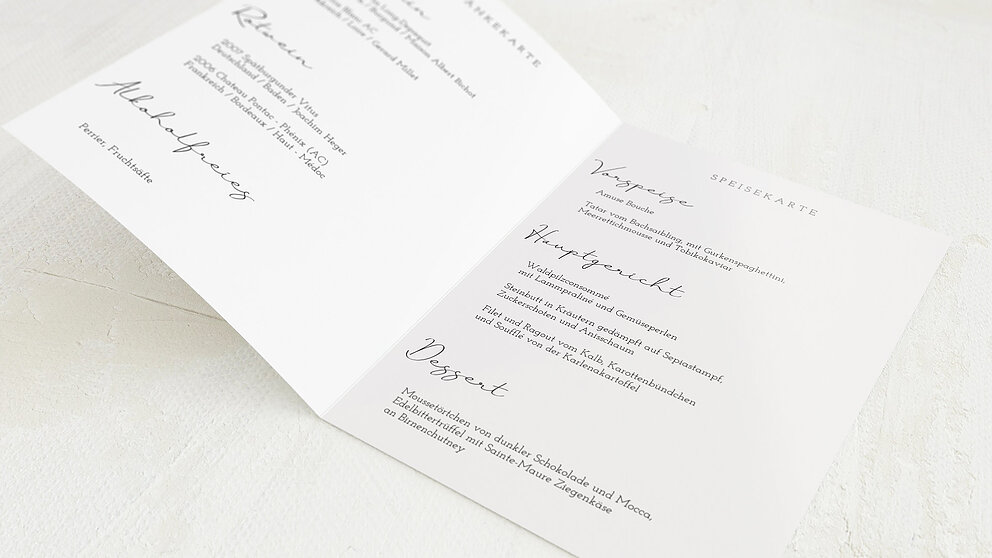 ANKEKARTE
Albert Bichot
Gerard Millet
Rotwein
2007 Spätburgunder Vitus
Deutschland / Baden / Joachim Heger
2006 Chateau Pontac - Phénix (AC)
Frankreich / Bordeaux / Haut - Medoc
Alkoholfreies
Perrier, Fruchtsäfte
SPEISEKARTE
Vorspeise
Amuse Bouche
Tatar vom Bachsaibling, mit Gurkenspaghettini,
Meerrettichmousse und Tobikokaviar
Hauptgericht
Waldpilzconsommé
mit Lammpraliné und Gemüseperlen
Steinbutt in Kräutern gedämpft auf Sepiastampf,
Zuckerschoten und Anisschaum
Filet und Ragout vom Kalb, Karottenbündchen
und Soufflé von der Karlenakartoffel
Dessert
Moussetörtchen von dunkler Schokolade und Mocca,
Edelbittertrüffel mit Sainte-Maure Ziegenkäse
an Birnenchutney